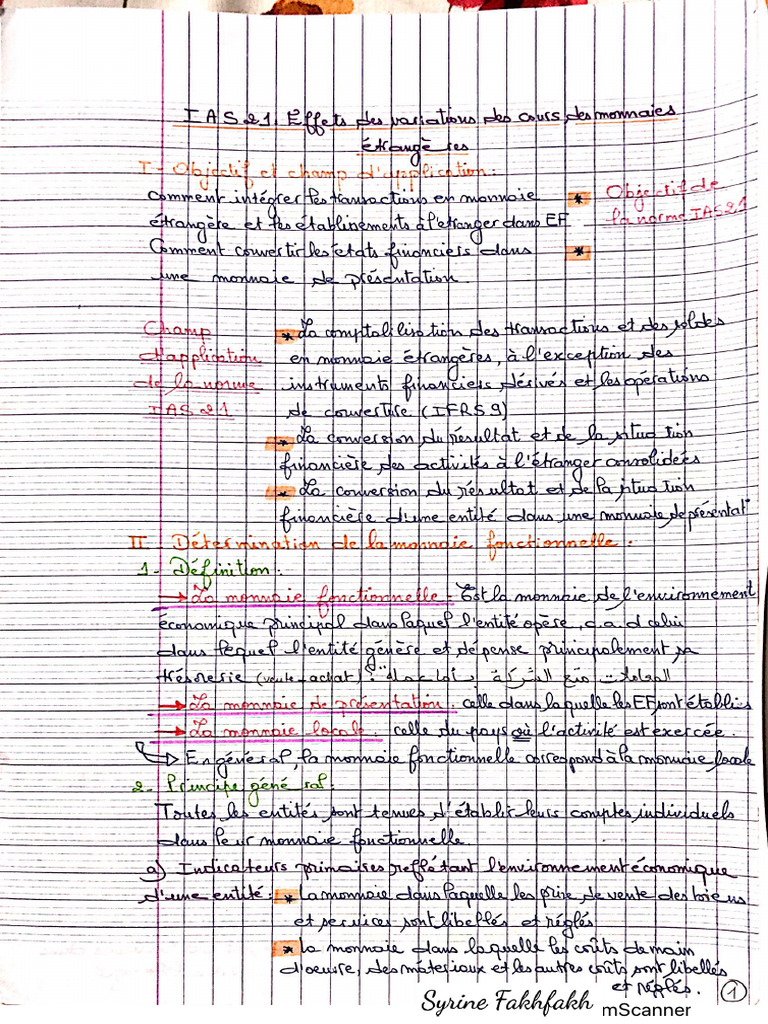 IAS 21. Effets des variations des cours des monnaies
étrangères
I - Objectif et champ d'application :
comment intégrer les transactions en monnaie * Objectif de
étrangère et les établissements à l'étranger dans EF la norme IAS 21
Comment convertir les états financiers dans *
une monnaie de présentation.
Champ * La comptabilisation des transactions et des soldes
d'application en monnaie étrangères, à l'exception des
de la norme instruments financiers dérivés et les opérations
IAS 21 de couverture (IFRS 9)
* La conversion du résultat et de la situation
financière des activités à l'étranger consolidées
* La conversion du résultat et de la situation
financière d'une entité dans une monnaie de présentat°
II Détermination de la monnaie fonctionnelle.
1 - Définition :
→ La monnaie fonctionnelle : Est la monnaie de l'environnement
économique principal dans laquel l'entité opère, c.a.d celui
dans lequel l'entité génère et dépense principalement sa
trésorerie (vente + achat) :
→ La monnaie de présentation : celle dans laquelle les EF sont établis
→ La monnaie locale : celle du pays où l'activité est exercée.
↳ En général, la monnaie fonctionnelle correspond à la monnaie locale
2 - Principe général :
Toutes les entités sont tenues d'établir leurs comptes individuels
dans leur monnaie fonctionnelle.
a) Indicateurs primaires refflétant l'environnement économique
d'une entité : * la monnaie dans laquelle les prix de vente des biens
et services sont libellés et réglés
* la monnaie dans laquelle les coûts de main
d'oeuvre, des matériaux et les autres coûts sont libellés
et réglés. 1
Syrine Fakhfakh mScanner